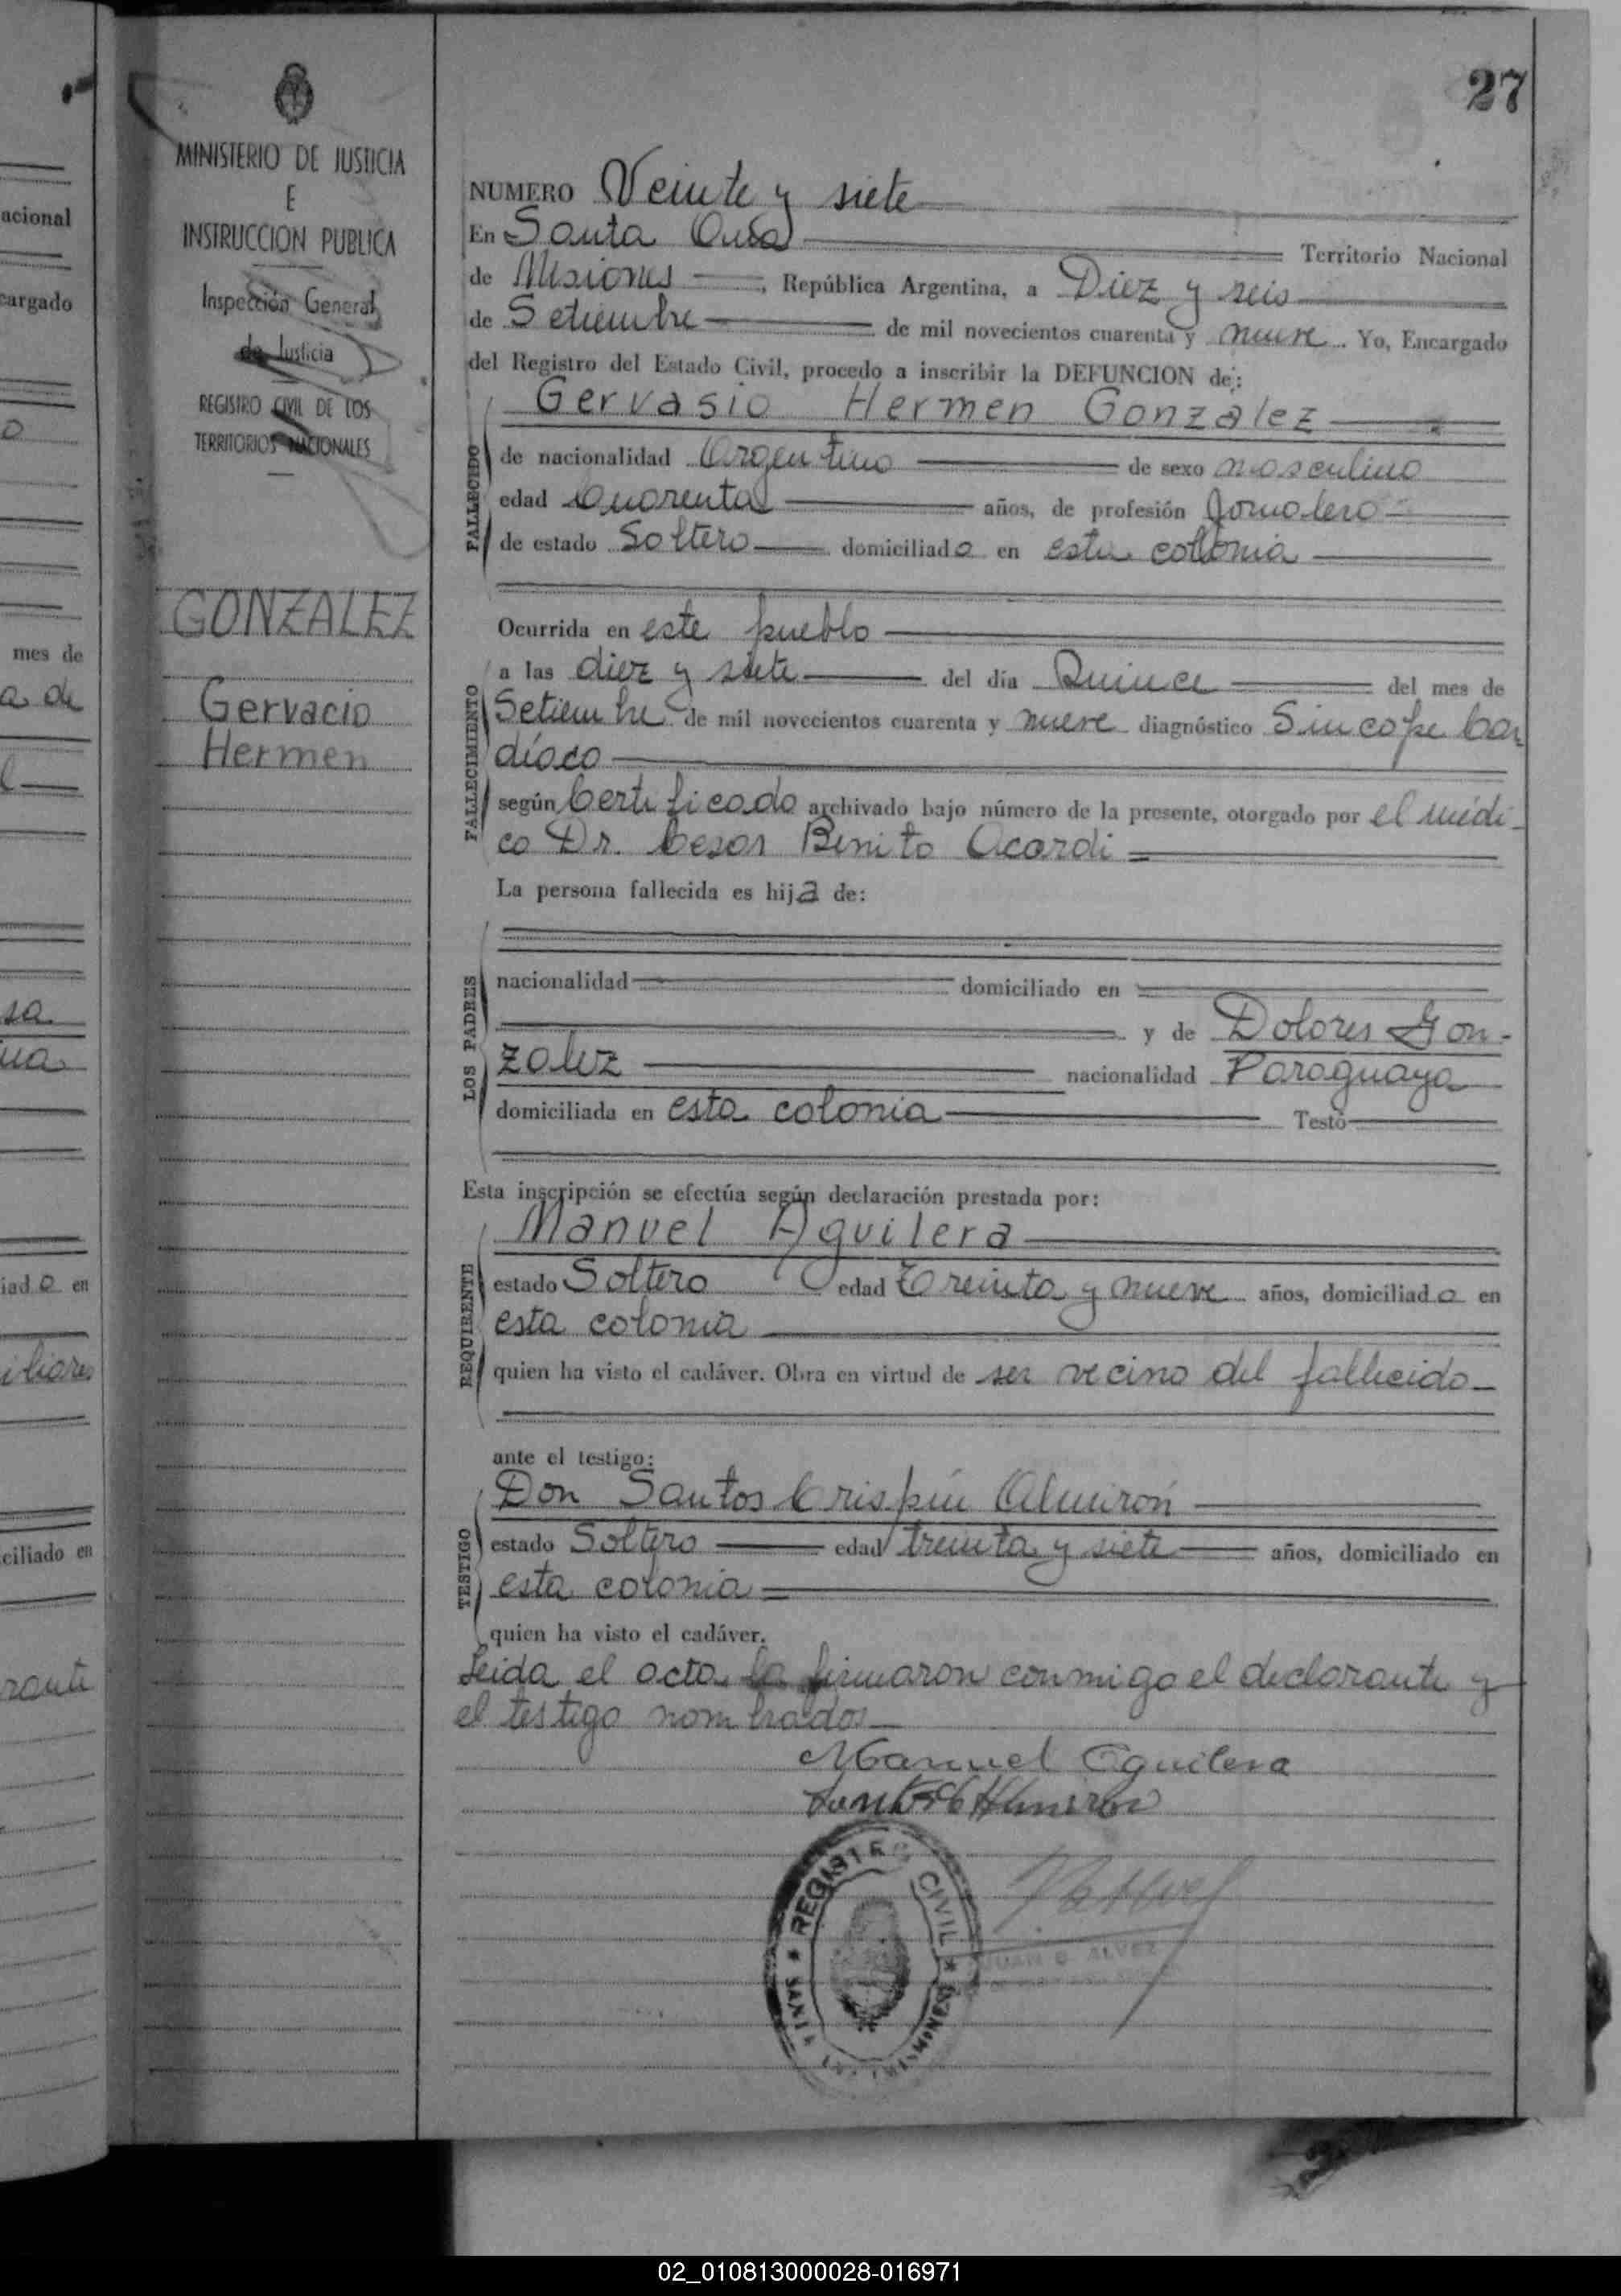 27
MINISTERIO DE JUSTICIA
E
INSTRUCCION PUBLICA
Inspección General
de Justicia
REGISTRO CIVIL DE LOS
TERRITORIOS NACIONALES
GONZALEZ
Gervacio
Hermen
NUMERO Veinte y siete
En Santa Ana Territorio Nacional
de Misiones, República Argentina, a Diez y seis
de Setiembre de mil novecientos cuarenta y nueve. Yo, Encargado
del Registro del Estado Civil, procedo a inscribir la DEFUNCION de:
FALLECIDO
Gervasio Hermen Gonzalez
de nacionalidad Argentino de sexo masculino
edad Cuarenta años, de profesión Jornalero
de estado Soltero domiciliado en esta colonia
FALLECIMIENTO
Ocurrida en este pueblo
a las diez y siete del día Quince del mes de
Setiembre de mil novecientos cuarenta y nueve diagnóstico Sincope Car
díaco
según Certificado archivado bajo número de la presente, otorgado por el médi-
co Dr. Cesar Benito Acardi
La persona fallecida es hija de:
LOS PADRES
nacionalidad domiciliado en
y de Dolores Gon-
zalez nacionalidad Paraguaya
domiciliada en esta colonia Testó
Esta inscripción se efectúa según declaración prestada por:
REQUIRENTE
Manuel Aguilera
estado Soltero edad Treinta y nueve años, domiciliado en
esta colonia
quien ha visto el cadáver. Obra en virtud de ser vecino del fallecido
ante el testigo:
TESTIGO
Don Santos Crispín Almirón
estado Soltero edad treinta y siete años, domiciliado en
esta colonia
quien ha visto el cadáver.
Leida el acta la firmaron conmigo el declarante y
el testigo nombrados
Manuel Aguilera
Santos C Almiron
REGISTRO CIVIL
SANTA
MISIONES
JUAN B. ALVEZ
acional
cargado
mes de
a de
sa
iado en
iliares
ciliado en
rante
02_010813000028-016971